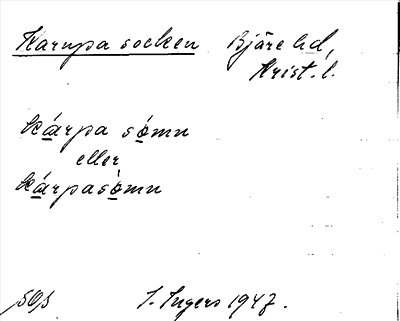 Karupa socken Bjäre hd,
Krist. l.
Kárpa sómn
eller
Kárpasómn
I. Ingers 1947.